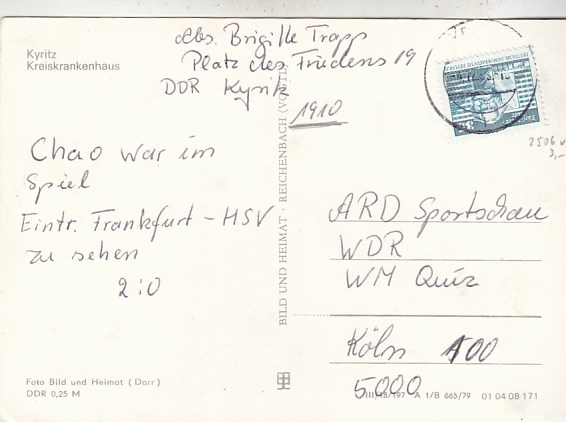 Kyritz
Kreiskrankenhaus
Abs. Brigitte Trapp
Platz des Friedens 19
DDR Kyritz
1910
Chao war im
Spiel
Eintr. Frankfurt - HSV
zu sehen
2:0
BILD UND HEIMAT · REICHENBACH (VOGTL)
2506 v
3,-
ARD Sportschau
WDR
WM Quiz
Köln 100
5000
Foto Bild und Heimat (Darr)
DDR 0,25 M
III/18/197 A 1/B 665/79 01 04 08 171